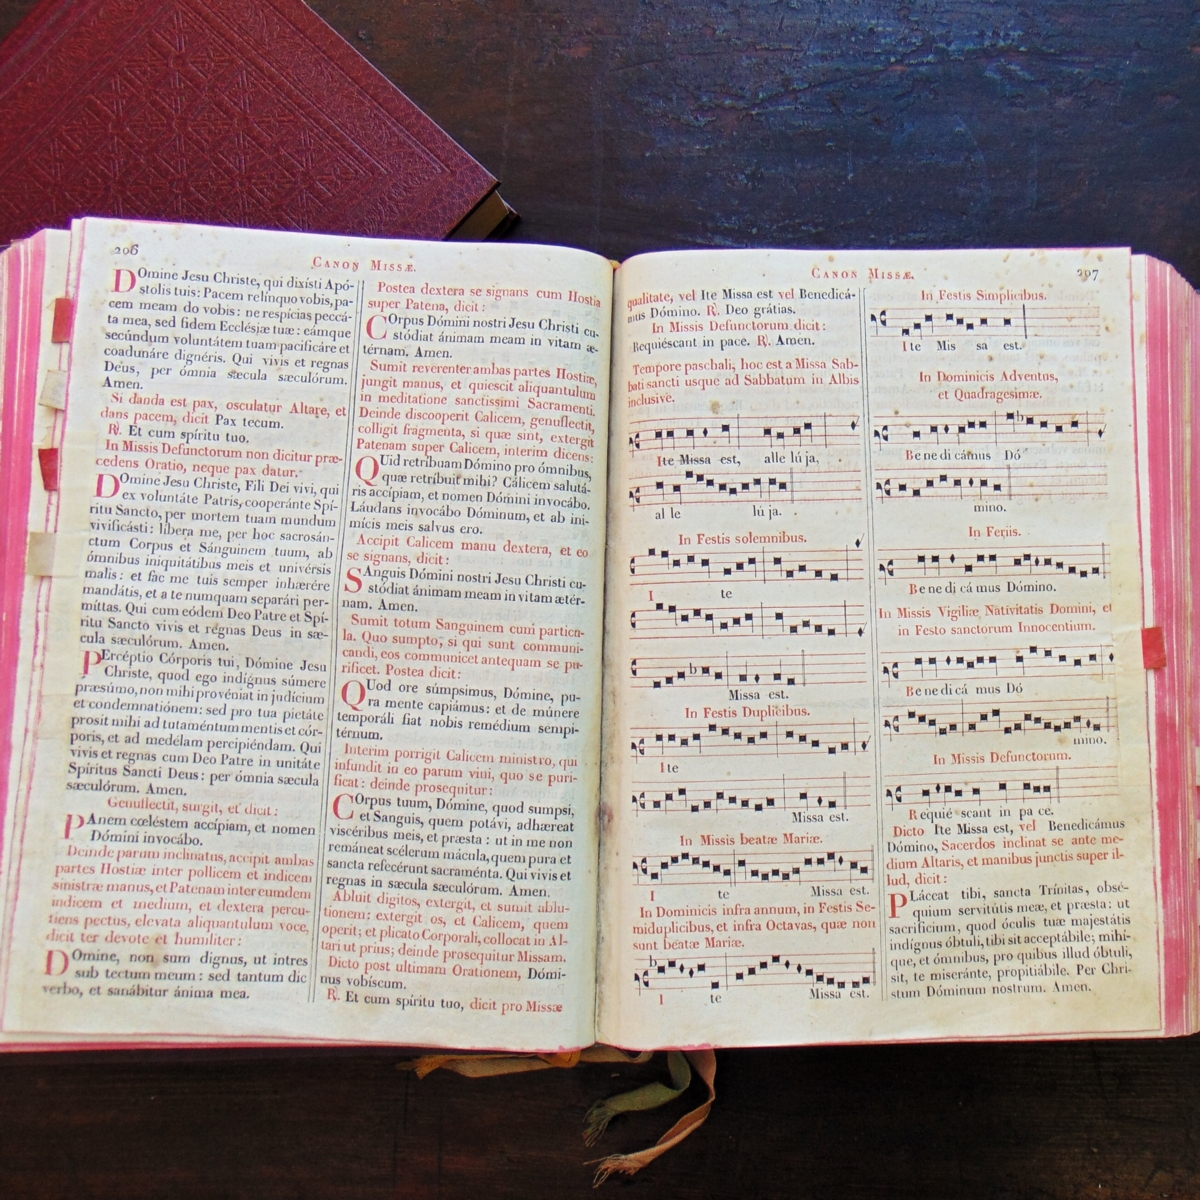 206
CANON MISSÆ.
Domine Jesu Christe, qui dixísti Apó-
stolis tuis: Pacem relínquo vobis, pa-
cem meam do vobis: ne respícias peccá-
ta mea, sed fidem Ecclésiæ tuæ: eámque
secúndum voluntátem tuam pacificáre et
coadunáre dignéris. Qui vivis et regnas
Deus, per ómnia sæcula sæculórum.
Amen.
Si danda est pax, osculatur Altare, et
dans pacem, dicit Pax tecum.
℟. Et cum spíritu tuo.
In Missis Defunctorum non dicitur præ-
cedens Oratio, neque pax datur.
Domine Jesu Christe, Fili Dei vivi, qui
ex voluntáte Patris, cooperánte Spí-
ritu Sancto, per mortem tuam mundum
vivificásti: libera me, per hoc sacrosán-
ctum Corpus et Sánguinem tuum, ab
ómnibus iniquitátibus meis et univérsis
malis: et fac me tuis semper inhærére
mandátis, et a te numquam separári per-
míttas. Qui cum eódem Deo Patre et Spí-
ritu Sancto vivis et regnas Deus in sæ-
cula sæculórum. Amen.
Percéptio Córporis tui, Dómine Jesu
Christe, quod ego indígnus súmere
præsúmo, non mihi provéniat in judícium
et condemnatiónem: sed pro tua pietáte
prosit mihi ad tutaméntum mentis et cór-
poris, et ad medélam percipiéndam. Qui
vivis et regnas cum Deo Patre in unitáte
Spíritus Sancti Deus: per ómnia sæcula
sæculórum. Amen.
Genuflectit, surgit, et dicit:
Panem cœléstem accípiam, et nomen
Dómini invocábo.
Deinde parum inclinatus, accipit ambas
partes Hostiæ inter pollicem et indicem
sinistræ manus, et Patenam inter eumdem
indicem et medium, et dextera percu-
tiens pectus, elevata aliquantulum voce,
dicit ter devote et humiliter:
Domine, non sum dignus, ut intres
sub tectum meum: sed tantum dic
verbo, et sanábitur ánima mea.
Postea dextera se signans cum Hostia
super Patena, dicit:
Corpus Dómini nostri Jesu Christi cu-
stódiat ánimam meam in vitam æ-
térnam. Amen.
Sumit reverenter ambas partes Hostiæ,
jungit manus, et quiescit aliquantulum
in meditatione sanctissimi Sacramenti.
Deinde discooperit Calicem, genuflectit,
colligit fragmenta, si quæ sint, extergit
Patenam super Calicem, interim dicens:
Quid retríbuam Dómino pro ómnibus,
quæ retríbuit mihi? Cálicem salutá-
ris accípiam, et nomen Dómini invocábo.
Láudans invocábo Dóminum, et ab ini-
mícis meis salvus ero.
Accipit Calicem manu dextera, et eo
se signans, dicit:
Sanguis Dómini nostri Jesu Christi cu-
stódiat ánimam meam in vitam ætér-
nam. Amen.
Sumit totum Sanguinem cum particu-
la. Quo sumpto, si qui sunt communi-
candi, eos communicet antequam se pu-
rificet. Postea dicit:
Quod ore súmpsimus, Dómine, pu-
ra mente capiámus: et de múnere
temporáli fiat nobis remédium sempi-
térnum.
Interim porrigit Calicem ministro, qui
infundit in eo parum vini, quo se puri-
ficat: deinde prosequitur:
Corpus tuum, Dómine, quod sumpsi,
et Sanguis, quem potávi, adhæreat
viscéribus meis, et præsta: ut in me non
remáneat scélerum mácula, quem pura et
sancta refecérunt sacraménta. Qui vivis et
regnas in sæcula sæculórum. Amen.
Abluit digitos, extergit, et sumit ablu-
tionem: extergit os, et Calicem, quem
operit; et plicato Corporali, collocat in Al-
tari ut prius; deinde prosequitur Missam.
Dicto post ultimam Orationem, Dómi-
nus vobíscum.
℟. Et cum spíritu tuo, dicit pro Missæ
CANON MISSÆ.
207
qualitate, vel Ite Missa est vel Benedicá-
mus Dómino. ℟. Deo grátias.
In Missis Defunctorum dicit:
Requiéscant in pace. ℟. Amen.
Tempore paschali, hoc est a Missa Sab-
bati sancti usque ad Sabbatum in Albis
inclusive.
Ite Missa est, alle lú ja,
al le lú ja.
In Festis solemnibus.
I te
Missa est.
In Festis Duplicibus.
Ite
Missa est.
In Missis beatæ Mariæ.
I te Missa est.
In Dominicis infra annum, in Festis Se-
miduplicibus, et infra Octavas, quæ non
sunt beatæ Mariæ.
I te Missa est.
In Festis Simplicibus.
Ite Mis sa est.
In Dominicis Adventus,
et Quadragesimæ.
Be ne di cámus Dó
mino.
In Feriis.
Be ne di cá mus Dómino.
In Missis Vigiliæ Nativitatis Domini, et
in Festo sanctorum Innocentium.
Be ne di cá mus Dó
mino.
In Missis Defunctorum.
Requié scant in pa ce.
Dicto Ite Missa est, vel Benedicámus
Dómino, Sacerdos inclinat se ante me-
dium Altaris, et manibus junctis super il-
lud, dicit:
Pláceat tibi, sancta Trínitas, obsé-
quium servitútis meæ, et præsta: ut
sacrifícium, quod óculis tuæ majestátis
indígnus óbtuli, tibi sit acceptábile; mihí-
que, et ómnibus, pro quibus illud óbtuli,
sit, te miseránte, propitiábile. Per Chri-
stum Dóminum nostrum. Amen.